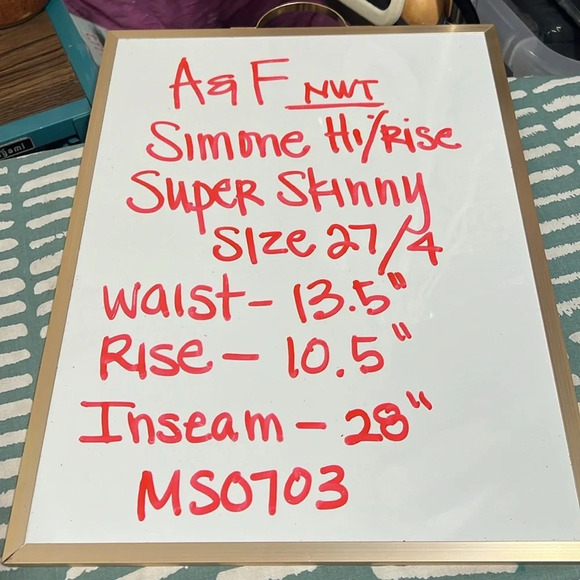 A&F NWT
Simone Hi/Rise
Super Skinny
Size 27/4
Waist - 13.5"
Rise - 10.5"
Inseam - 28"
MS0703